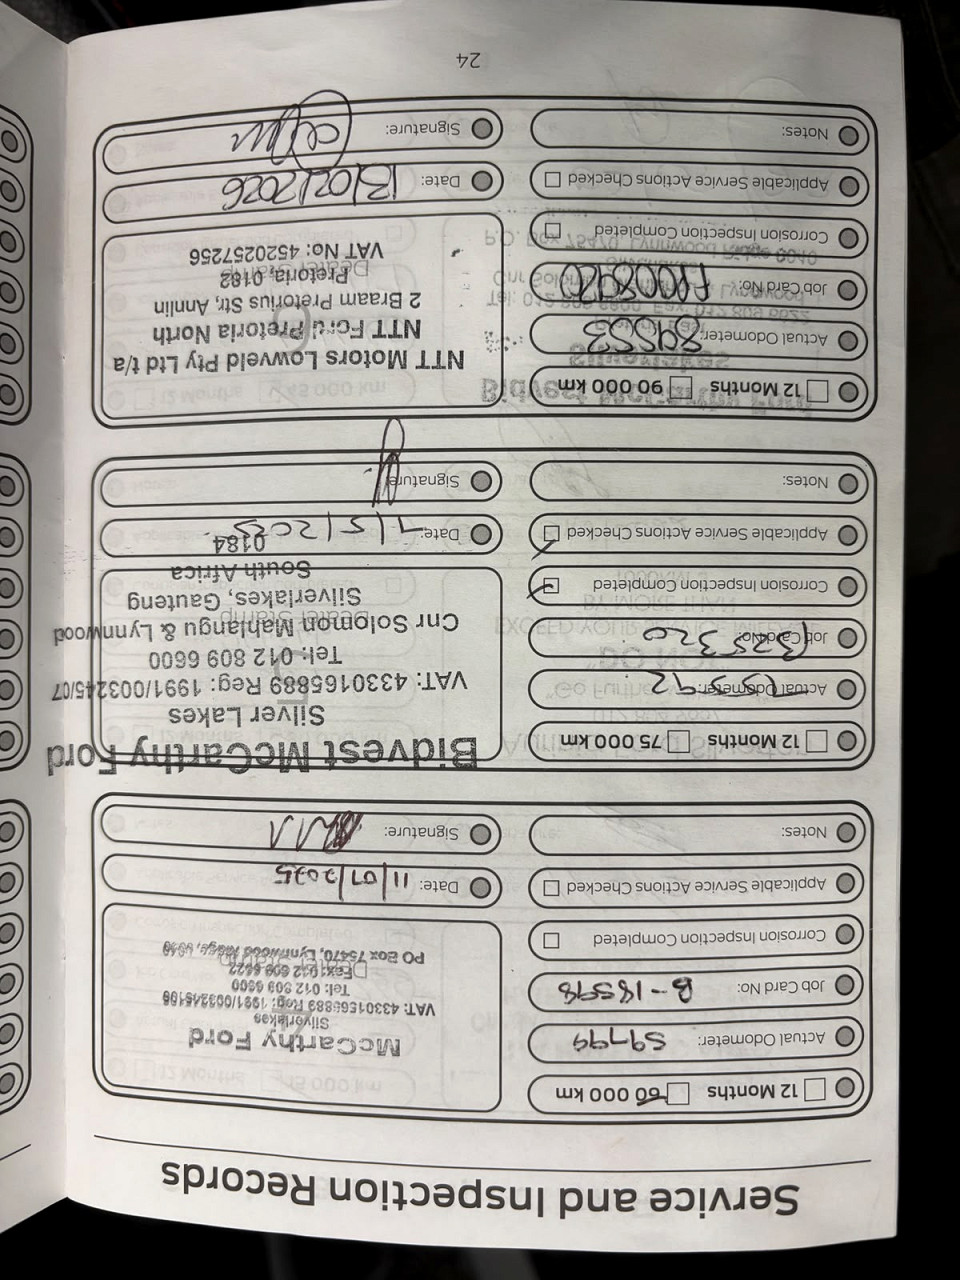 Service and Inspection Records
12 Months 60 000 km
Actual Odometer: 59799
Job Card No: B-185598
Corrosion Inspection Completed
Applicable Service Actions Checked
Notes:
McCarthy Ford
Silverlakes
VAT: 4330165889 Reg: 1991/003245/06
Tel: 012 809 6600
Fax: 012 809 6622
PO Box 75470, Lynnwood Ridge,
Dealer Stamp
Date: 11/07/2025
Signature:
12 Months 75 000 km
Actual Odometer:
Job Card No:
Corrosion Inspection Completed
Applicable Service Actions Checked
Notes:
Bidvest McCarthy Ford
Silver Lakes
VAT: 4330165889 Reg: 1991/003245/07
Tel: 012 809 6600
Cnr Solomon Mahlangu & Lynnwood
Dealer Stamp
Silverlakes, Gauteng
South Africa
0184
Date:
Signature:
12 Months 90 000 km
Actual Odometer:
Job Card No:
Corrosion Inspection Completed
Applicable Service Actions Checked
Notes:
NTT Motors Lowveld Pty Ltd t/a
NTT Ford Pretoria North
2 Braam Pretorius Str, Annlin
Pretoria, 0182
Dealer Stamp
VAT No: 4520257256
Date: 13/02/2026
Signature:
24